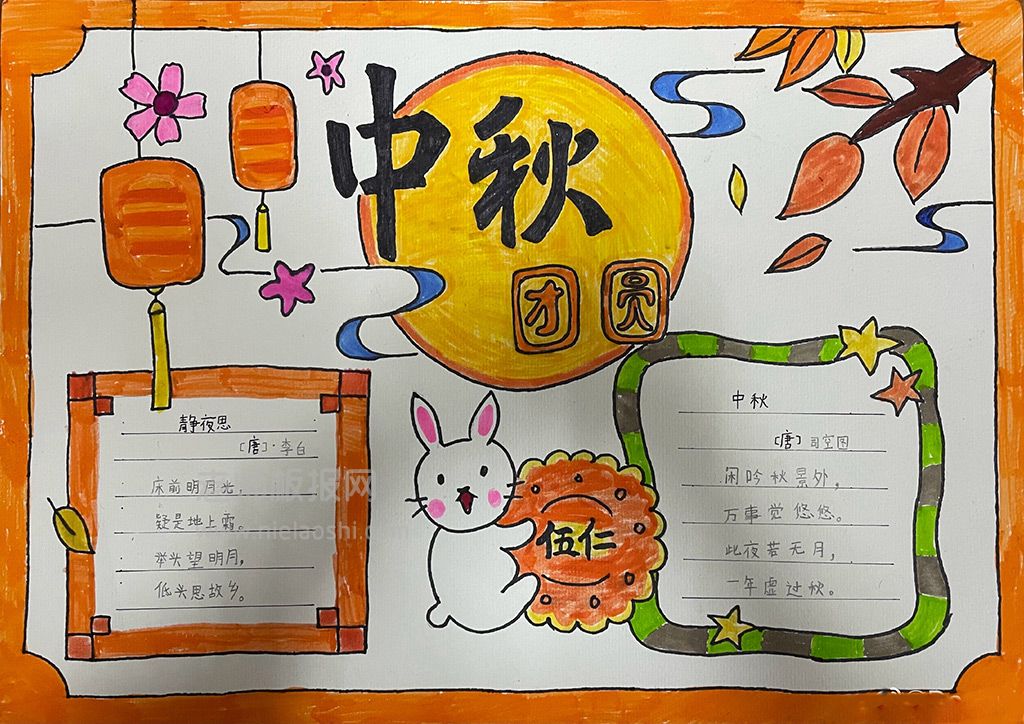 中秋
团圆
静夜思
〔唐〕·李白
床前明月光,
疑是地上霜。
举头望明月,
低头思故乡。
伍仁
中秋
〔唐〕司空图
闲吟秋景外,
万事觉悠悠。
此夜若无月,
一年虚过秋。